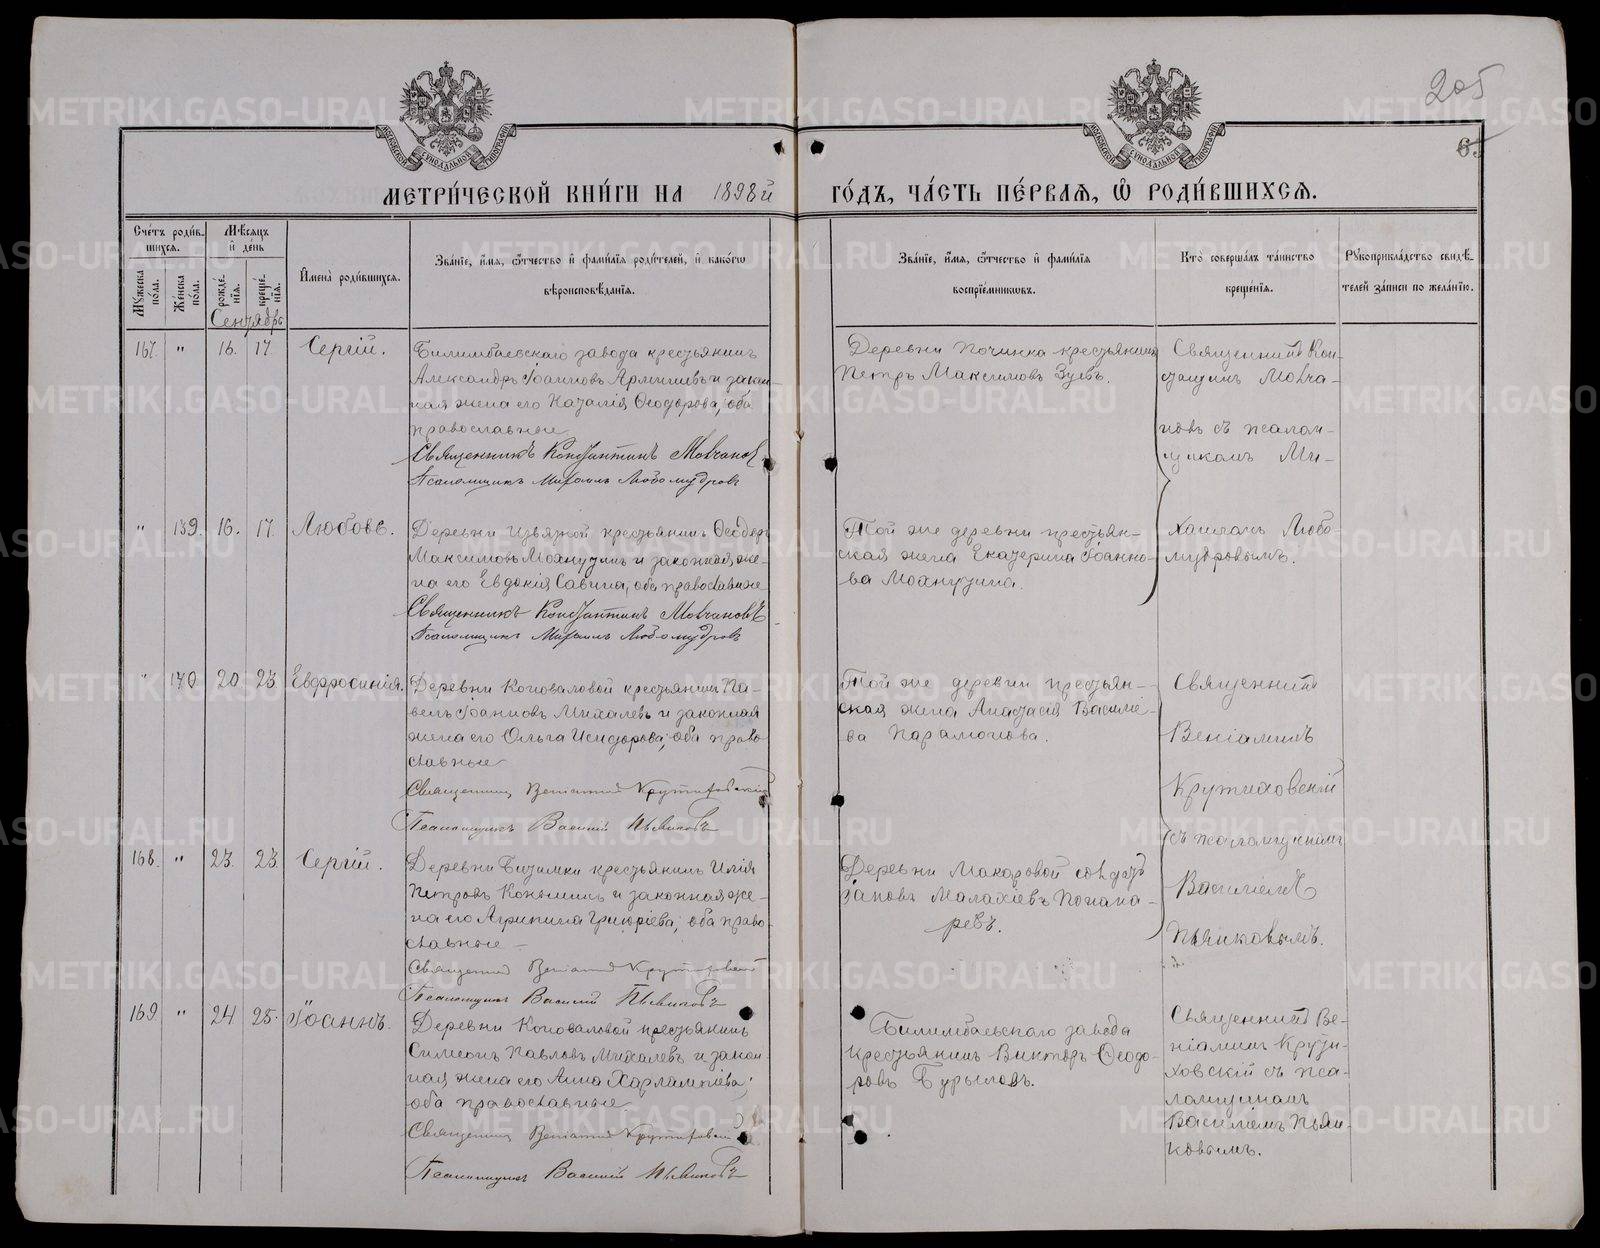 205
65
МЕТРИ́ЧЕСКОЙ КНИ́ГИ НА 1898й ГО́ДЪ, ЧА́СТЬ ПЕ́РВАЯ, Ѿ РОДИ́ВШИХСЯ.
Сче́тъ роди́в-
шихся.
Мѣ́сяцъ
и҆ де́нь
Мꙋжеска по́ла.
Же́нска по́ла.
рожде́-
нїя.
креще́-
нїя.
Сентябрь
И҆мена̀ роди́вшихся.
Зва́нїе, и҆́мя, ѻ҆́тчество и҆ фами́лїя роди́телей, и҆ како́гѡ
вѣроисповѣ́данїя.
Зва́нїе, и҆́мя, ѻ҆́тчество и҆ фами́лїя
воспрїе́мникѡвъ.
Кто̀ соверша́лъ та́инство
креще́нїя.
Рꙋкоприкла́дство свидѣ́-
телей за́писи по жела́нїю.
167. " 16. 17. Сергій.
Билимбаевскаго завода крестьянинъ
Александръ Іоанновъ и закон-
ная жена его Наталія Ѳеодорова, оба
православные
Священникъ Константинъ Мовчановъ
Псаломщикъ Михаилъ Любомудровъ
Деревни Починка крестьянинъ
Петръ Максимовъ Зуевъ.
Священникъ Кон-
стантинъ Мовча-
новъ съ псалом-
щикомъ Ми-
" 139. 16. 17. Любовь.
Деревни крестьянинъ Ѳеодоръ
Максимовъ и законная же-
на его Евдокія Савина, оба православные
Священникъ Константинъ Мовчановъ
Псаломщикъ Михаилъ Любомудровъ
Той же деревни крестьян-
ская жена Екатерина Іоанно-
ва
хаиломъ Любо-
мудровымъ.
" 140 20. 23. Евфросинія.
Деревни Коноваловой крестьянинъ Па-
велъ Іоанновъ Михалевъ и законная
жена его Ольга Исидорова, оба право-
славные
Священникъ Веніаминъ Крутиховскій
Псаломщикъ Василій Пьянковъ
Той же деревни крестьян-
ская жена Анастасія Василье-
ва Парамонова.
Священникъ
Веніаминъ
Крутиховскій
съ псаломщикомъ
168. " 23. 23. Сергій.
Деревни Бизимки крестьянинъ Илія
Петровъ и законная же-
на его Агрипина Григоріева, оба право-
славные
Священникъ Веніаминъ Крутиховскій
Псаломщикъ Василій Пьянковъ
Деревни Макаровой
Іаковъ Малахіевъ Понама-
ревъ.
Василіемъ
Пьянковымъ.
169 " 24 25. Іоаннъ.
Деревни Коноваловой крестьянинъ
Симеонъ Павловъ Михалевъ и закон-
ная жена его Анна Харлампіева,
оба православные
Священникъ Веніаминъ Крутиховскій
Псаломщикъ Василій Пьянковъ
Билимбаевскаго завода
крестьянинъ Викторъ Ѳеодо-
ровъ Бурыловъ.
Священникъ Ве-
ніаминъ Крути-
ховскій съ пса-
ломщикомъ
Василіемъ Пьян-
ковымъ.
METRIKI.GASO-URAL.RU